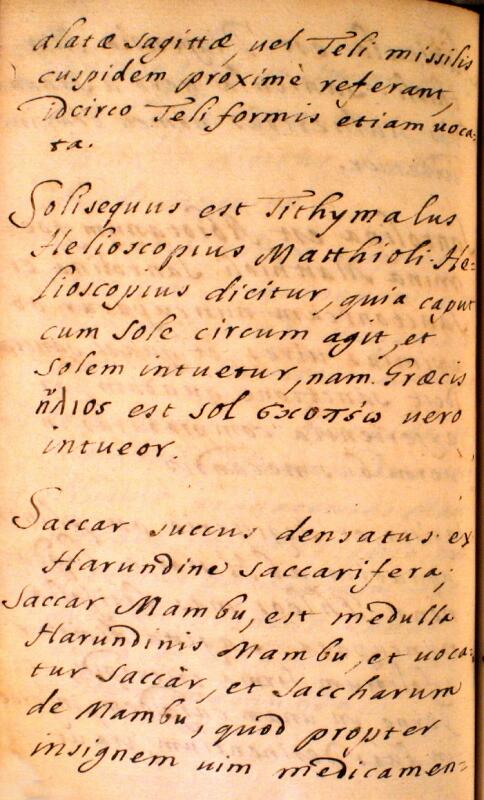 alatæ sagittæ, uel Teli missilis
cuspidem proximè referant,
idcirco Teliformis etiam uoca-
ta.
Solisequus est Tithymalus
Helioscopius Matthioli. He-
lioscopius dicitur, quia caput
cum Sole circum agit, et
Solem intuetur, nam Græcis
ἥλιος est sol σκοπέω uero
intueor.
Saccar succus densatus ex
Harundine saccarifera,
Saccar Mambu, est medulla
Harundinis Mambu, et uoca-
tur Saccar, et Saccharum
de Mambu, quod propter
insignem uim medicamen-